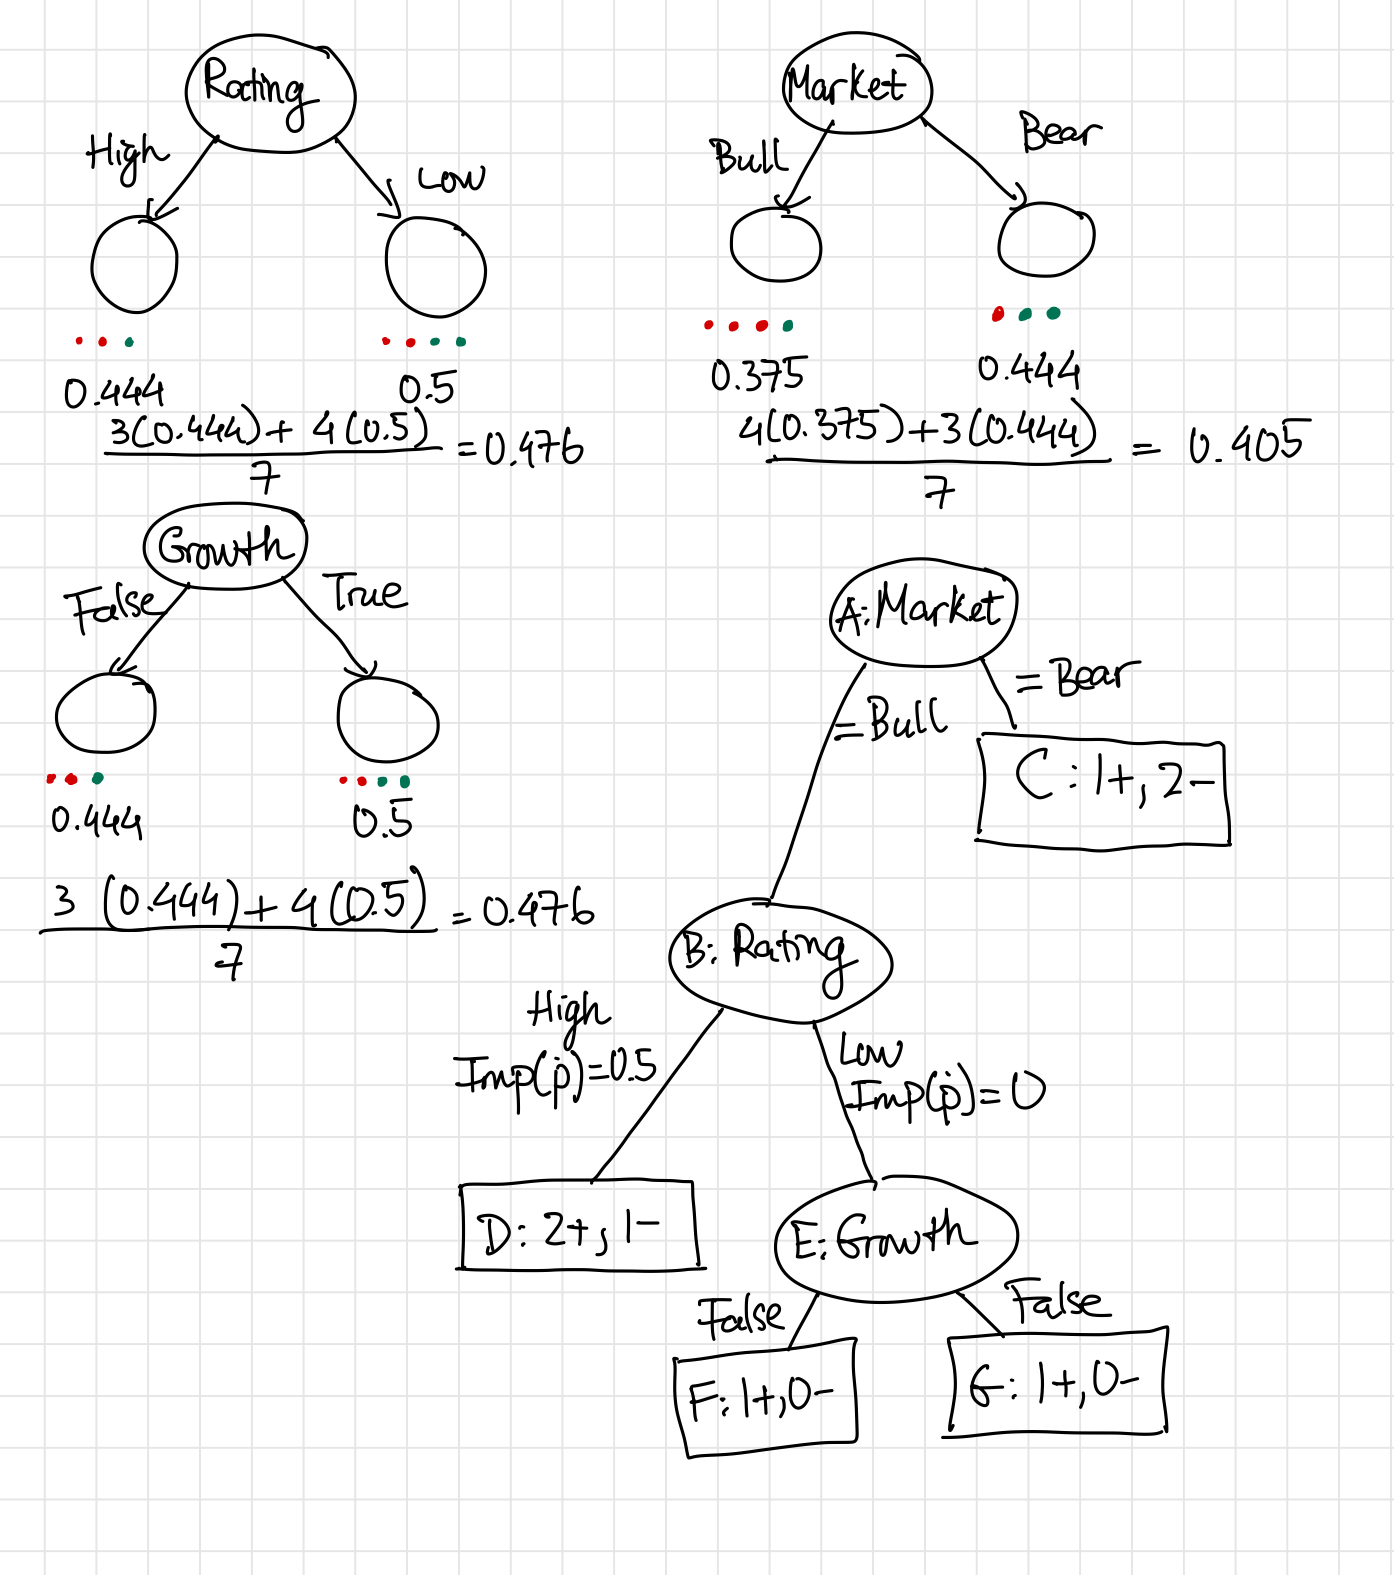 Rating
High
Low
0.444
0.5
3(0.444)+ 4(0.5)
7
=0.476
Market
Bull
Bear
0.375
0.444
4(0.375)+3(0.444)
7
= 0.405
Growth
False
True
0.444
0.5
3 (0.444)+ 4(0.5)
7
=0.476
A:Market
=Bull
=Bear
C:1+,2-
B: Rating
High
Imp(p)=0.5
Low
Imp(p)=0
D: 2+,1-
E:Growth
False
False
F:1+,0-
G:1+,0-